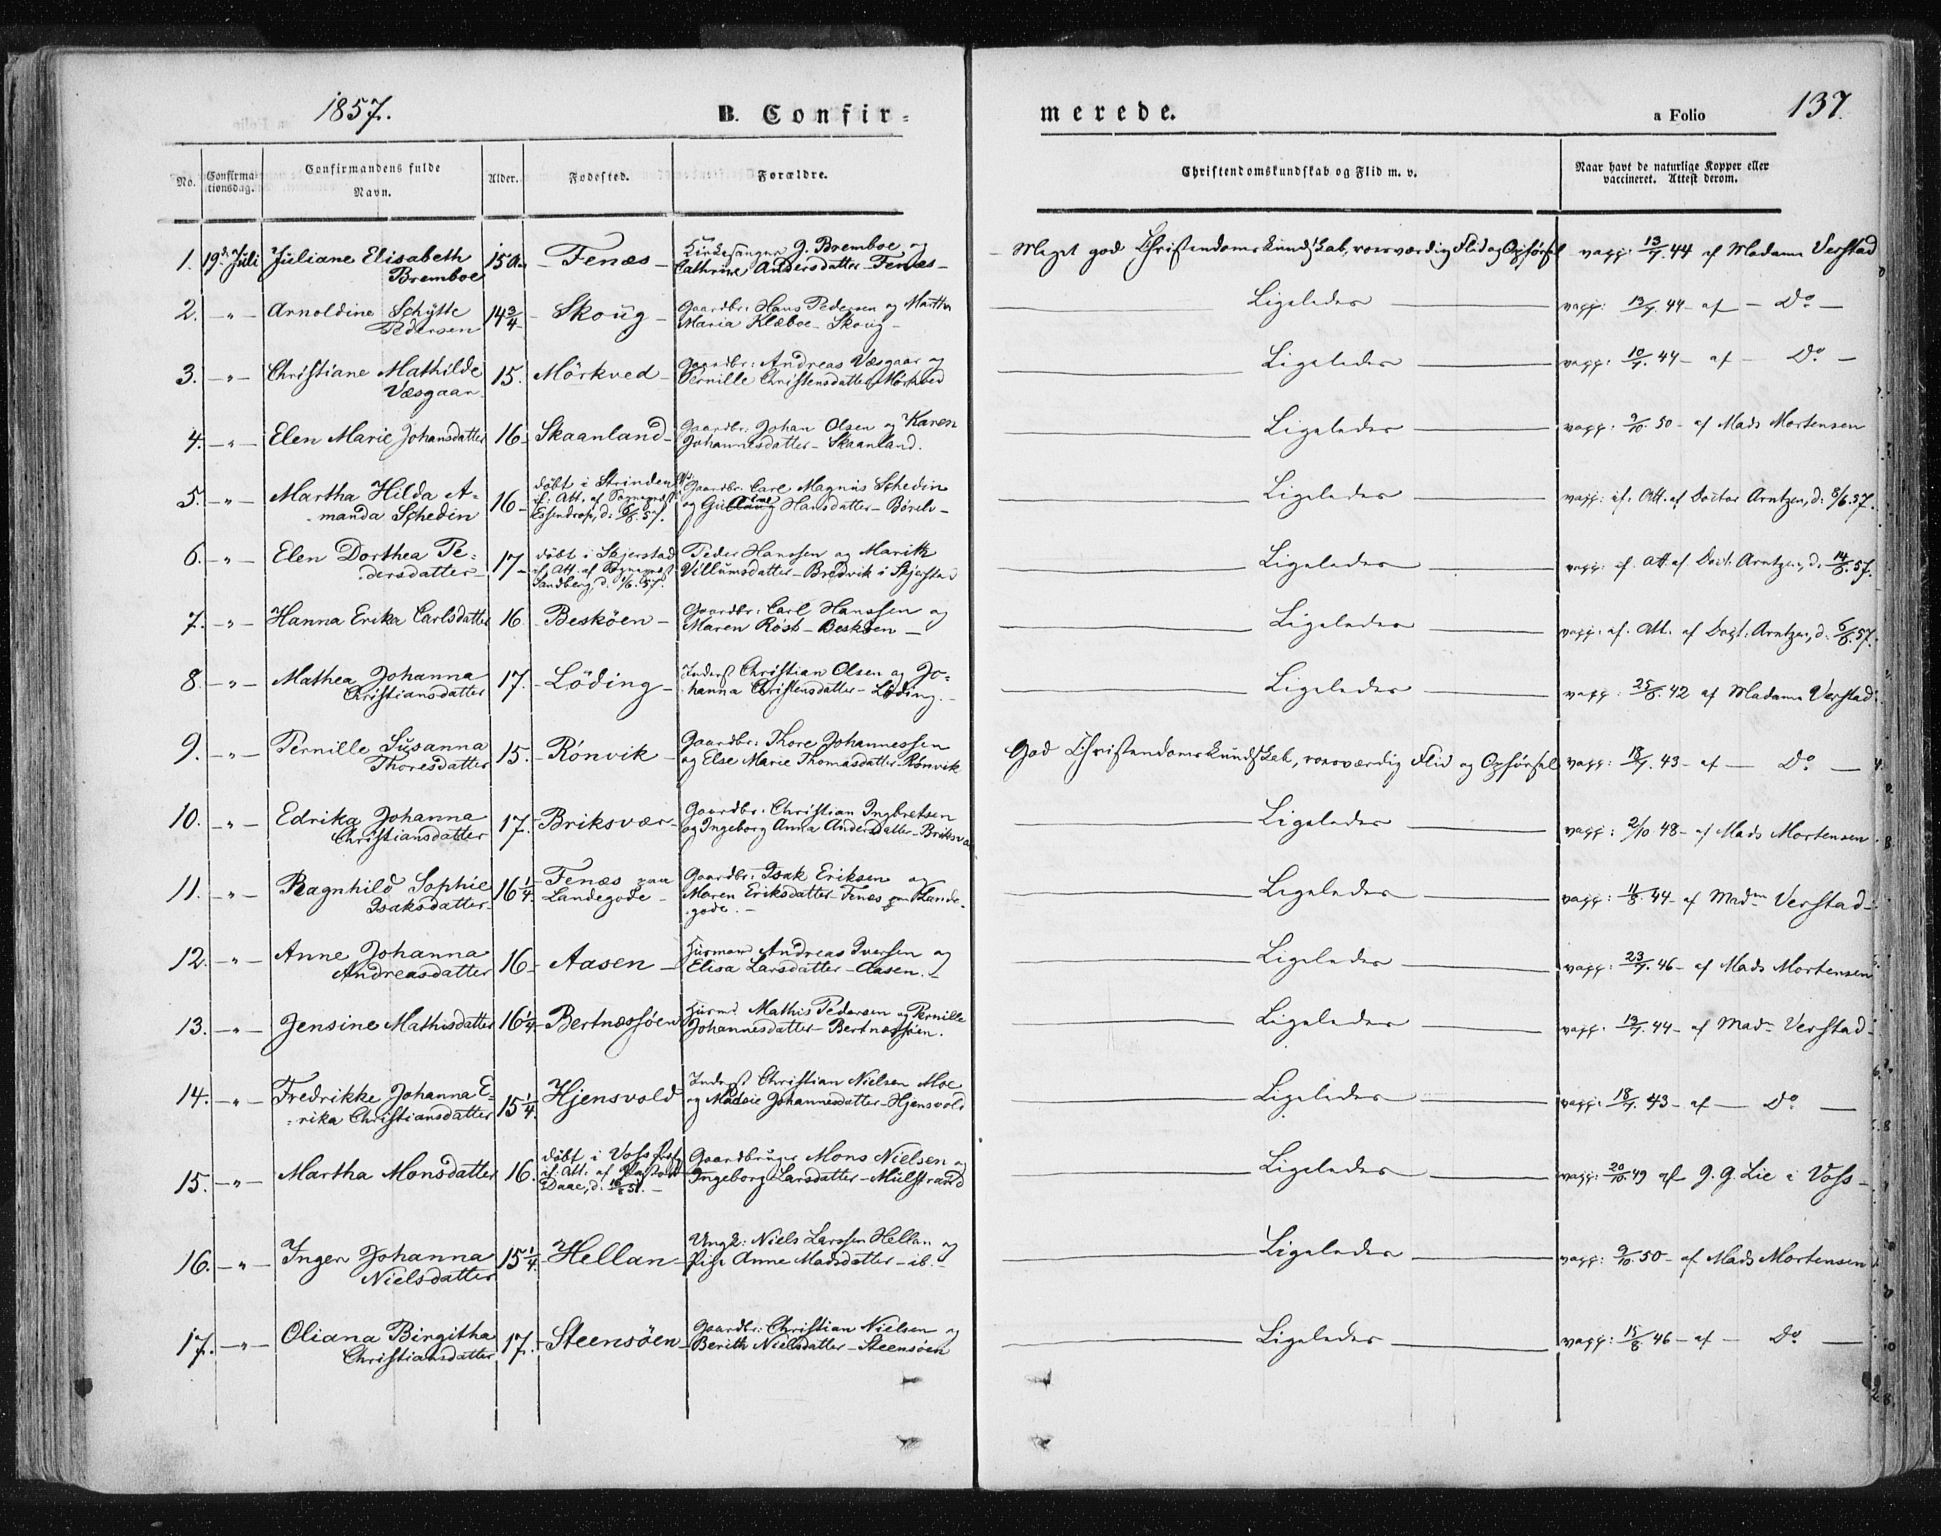 1857.
B. Confir-
merede.
a Folio
137.
No.
Confirmationsdag.
Confirmandens fulde Navn.
Alder.
Fødested.
Forældre.
Christendomskundskab og Flid m. v.
Naar havt de naturlige Kopper eller
vaccineret. Attest derom.
1. 19d. Juli Juliane Elisabeth 15 Aar - Fenæs - Kirkesanger J. Bremboe og - Meget god Christendomskundskab, roesværdig Flid og Opførsel vacc: 13/7. 44 af Madame Verstad
Bremboe Cathrine Andersdatter - Fenæs -
2. -"- Arnoldine Schytte 14 3/4 - Skoug - Gaardbr: Hans Pedersen og Martha Ligeledes vacc: 13/7. 44 - af - Do -
Pedersen Maria Klæboe - Skoug -
3. -"- Christiane Mathilde 15. Mörkved - Gaardbr: Andreas Væsgaar og Ligeledes vacc: 10/7. 44 - af - Do -
Væsgaar Pernille Christensdatter Mörkved
4. -"- Elen Marie Johansdatter 16 - Skaanland - Gaardbr: Johan Olsen og Karen Ligeledes vacc: 9/10. 50 - af Mads Mortensen
Johannesdatter - Skaanland.
5. -"- Martha Hilda A- 16 - döbt i Strinden Gaardbr. Carl Magnus Schedin Ligeledes vacc: if. Att. af Doctor Arntzen, d. 8/6. 37.
manda Schedin if: Att. af Sogneprest og Hansdatter -
Essendrop, d: 57.
6. -"- Elen Dorthea Pe- 17 - döbt i Skjerstad Peder Hanssen og Marith Ligeledes vacc: if. Att. af Doct: Arntzen, d. 14/6. 57.
dersdatter - if. Att. af Sognepr. Villumsdatter - Bredvik i Skjerstad
Sandberg, d. 1/6. 57.
7. -"- Hanna Erika Carlsdatter 16 - Besköen - Gaardbr: Carl Hanssen og Ligeledes vacc. if. Att. af Doct: Arntzen, d. 5/6. 57.
Maren Röst - Besköen -
8 -"- Mathea Johanna 17. - Löding - Inderst Christian Olsen og Jo- Ligeledes vacc: 25/8. 42 af Madame Verstad.
Christiansdatter hanna Christensdatter - Löding. -
9. -"- Pernille Susanna 15. - Rönvik - Gaardbr: Thore Johannessen God Christendomskundskab, roesværdig Flid og Opførsel vacc: 18/7. 43 - af - Do -
Thoresdatter og Else Marie Thomasdatter Rönvik
10. -"- Edrika Johanna 17. - Briksvær - Gaardbr: Christian Ingbretsen Ligeledes vacc: 2/10. 48 - af Mads Mortensen
Christiansdatter og Ingeborg Anna Andersdatter - Briksvær
11. -"- Ragnhild Sophie 16 1/4 Fenæs paa Gaardbr: Isak Eriksen og Ligeledes vacc: 11/8. 44 - af Madm Verstad -
Isaksdatter - Landegode - Maren Eriksdatter - Fenæs paa Lande-
gode. -
12. -"- Anne Johanna 16 - Aasen - Huusmand Andreas Iversen og Ligeledes vacc: 23/7. 46 - af Mads Mortensen
Andreasdatter Elisa Larsdatter - Aasen. -
13. -"- Jensine Mathisdatter 16 1/4 - Bertnæssjöen Huusmd. Mathis Pedersen og Pernille Ligeledes vacc. 13/7. 44 - af Madm Verstad -
Johannesdatter - Bertnæssjöen.
14. -"- Fredrikke Johanna E- 15 1/4. Hjensvold Inderst Christian Nielsen Moe Ligeledes vacc: 18/7. 43 - af - Do -
rika Christiansdatter og Johannesdatter - Hjensvold
15. -"- Martha Monsdatter 16. döbt i Voss Gaardbruger Mons Nielsen og Ligeledes vacc: 20/10. 49 af G. G. Lie i Voss -
if: Att. af Ingeborg Larsdatter - Mulstrand
Daae, d.
16. -"- Inger Johanna 15 1/4. Hellan - Ungk: Niels Larssen Hellan og Ligeledes vacc: 9/10. 50 - af Mads Mortensen
Nielsdatter Pige Anne Madsdatter - ib. -
17. -"- Oliana Birgitha 17. - Steensöen - Gaardbr: Christian Nielsen og Ligeledes vacc: 15/8. 46 - af - Do -
Christiansdatter Berith Nielsdatter - Steensöen